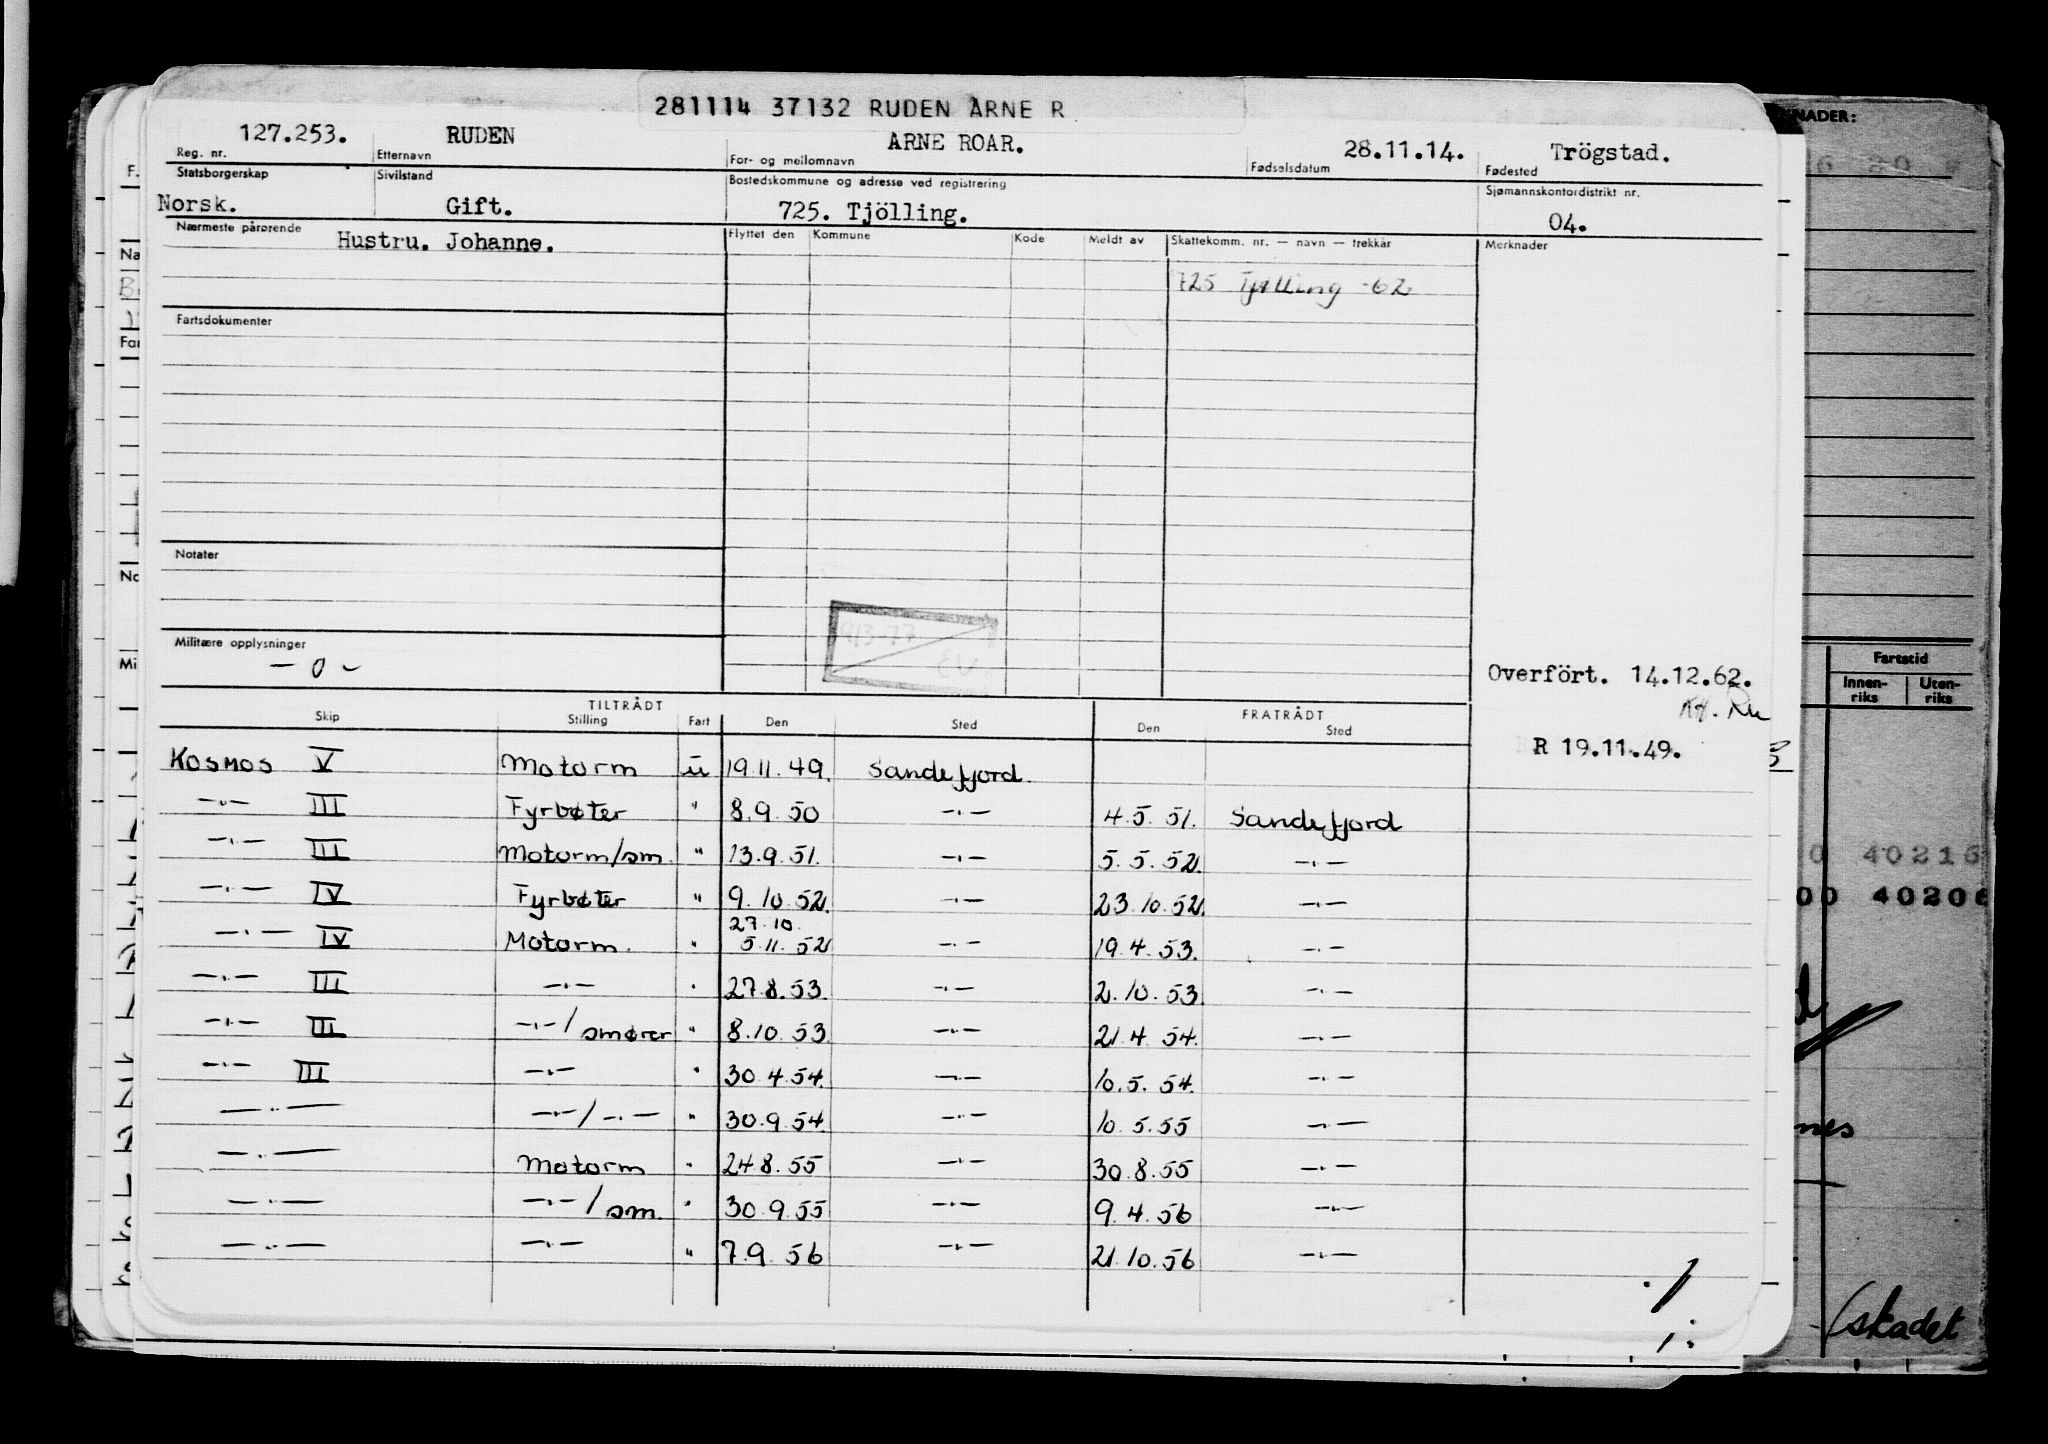 281114 37132 RUDEN ARNE R
127.253. RUDEN ARNE ROAR. 28.11.14. Trögstad.
Reg. nr. Etternavn For- og mellomnavn Fødselsdatum Fødested
Statsborgerskap Sivilstand Bostedskommune og adresse ved registrering Sjømannskontordistrikt nr.
Norsk. Gift. 725. Tjölling. 04.
Nærmeste pårørende Hustru. Johanne. Flyttet den Kommune Kode Meldt av Skattekomm. nr. — navn — trekkår Merknader
725 Tjølling -62
Fartsdokumenter
Notater
Militære opplysninger
— 0 —
Overfört. 14.12.62.
R 19.11.49.
TILTRÅDT FRATRÅDT
Skip Stilling Fart Den Sted Den Sted
KOSMOS V Motorm u 19.11.49. Sandefjord
—·— III Fyrbøter " 8.9.50 —·— 4.5.51. Sandefjord
—·— III Motorm/sm. " 13.9.51. —·— 5.5.52. —·—
—·— IV Fyrbøter " 9.10.52. —·— 23.10.52. —·—
27.10.
—·— IV Motorm. " 5.11.52 —·— 19.4.53. —·—
—·— III —·— " 27.8.53. —·— 2.10.53 —·—
—·— III —·—/smører " 8.10.53 —·— 21.4.54. —·—
—·— III —·— " 30.4.54. —·— 10.5.54. —·—
—·— —·—/—·— " 30.9.54. —·— 10.5.55 —·—
—·— Motorm " 24.8.55 —·— 30.8.55 —·—
—·— —·—/sm. " 30.9.55 —·— 9.4.56 —·—
—·— —·— " 7.9.56 —·— 21.10.56 —·—
NADER:
Fartstid
Innen-riks Uten-riks
40216
00 40206
(skadet